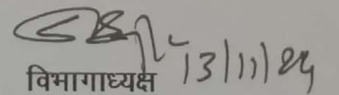 13/11/24
विभागाध्यक्ष